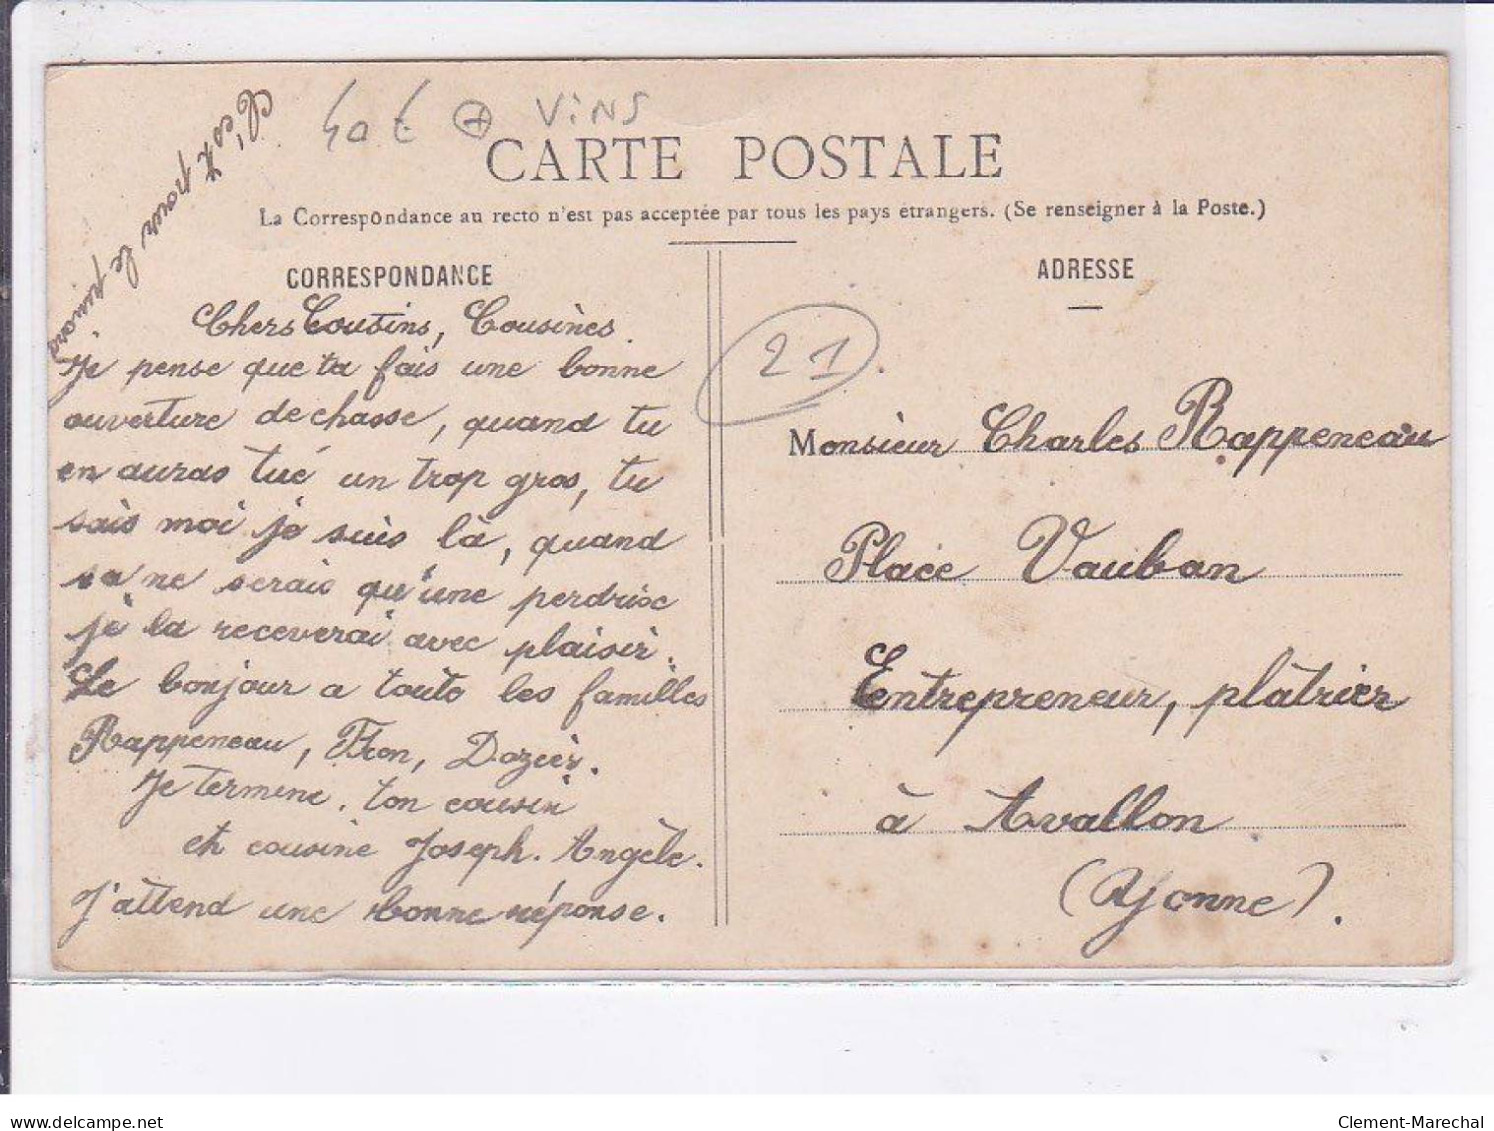 C'est pour le pinard
40 € VINS
CARTE POSTALE
La Correspondance au recto n'est pas acceptée par tous les pays étrangers. (Se renseigner à la Poste.)
CORRESPONDANCE
Chers Cousins, Cousines.
Je pense que ta fais une bonne
ouverture de chasse, quand tu
en auras tué un trop gros, tu
sais moi je suis là, quand
sa ne serais qu'une perdrise
je la receverai avec plaisir.
Le bonjour a touts les familles
Rappeneau, Fron, Dozier.
Je termine. ton cousin
et cousine Joseph. Angèle.
J'attend une bonne réponse.
ADRESSE
21
Monsieur Charles Rappeneau
Place Vauban
Entrepreneur, platrier
à Avallon
(Yonne).
delcampe.net
Clement-Marechal